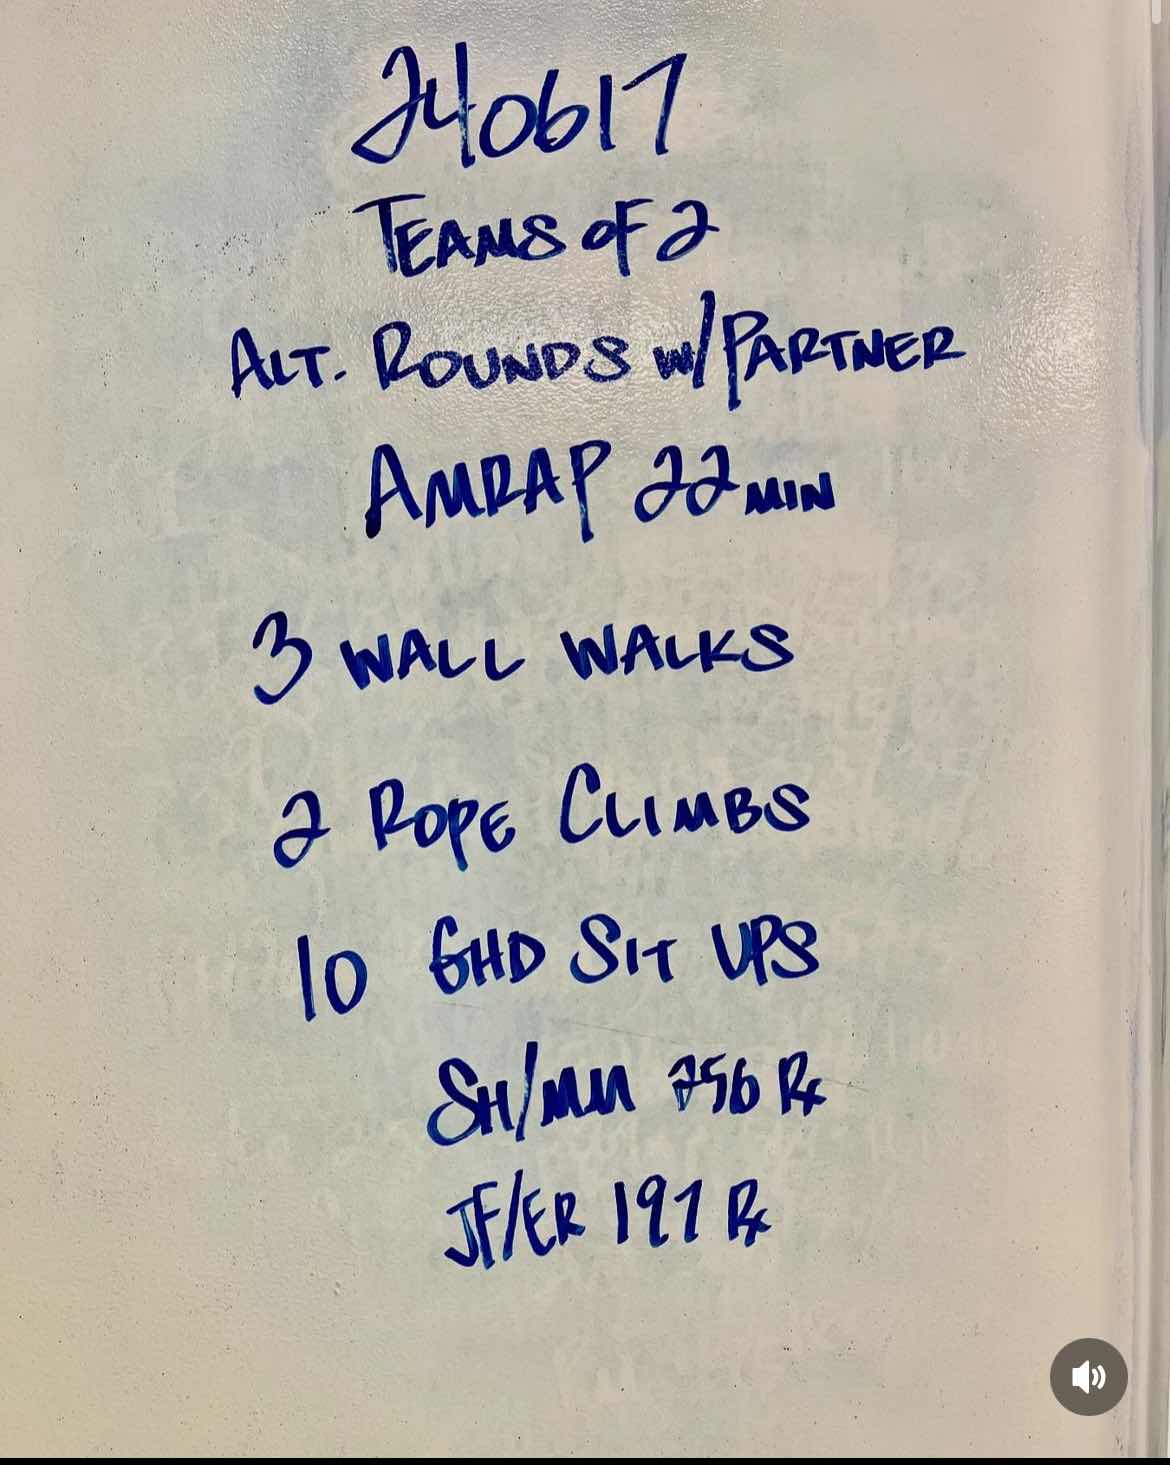 240617
TEAMS OF 2
ALT. ROUNDS W/PARTNER
AMRAP 22 MIN
3 WALL WALKS
2 ROPE CLIMBS
10 GHD SIT UPS
SH/MM 256 Rx
JF/ER 197 Rx